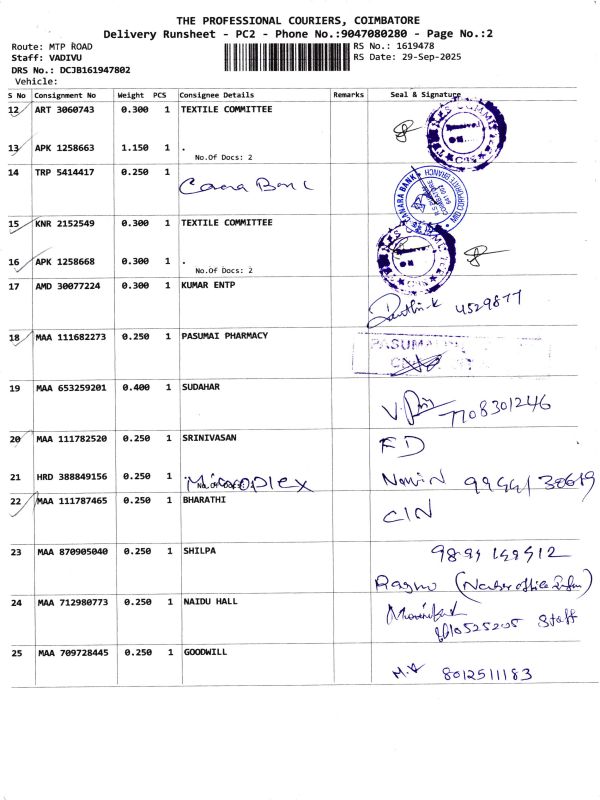 THE PROFESSIONAL COURIERS, COIMBATORE
Delivery Runsheet - PC2 - Phone No.:9047080280 - Page No.:2
Route: MTP ROAD
RS No.: 1619478
Staff: VADIVU
RS Date: 29-Sep-2025
DRS No.: DCJB161947802
Vehicle:
S No Consignment No Weight PCS Consignee Details Remarks Seal & Signature
12 ART 3060743 0.300 1 TEXTILE COMMITTEE
13 APK 1258663 1.150 1 .
No.Of Docs: 2
14 TRP 5414417 0.250 1
Canara Bank
CANARA BANK
CORPORATE BRANCH
15 KNR 2152549 0.300 1 TEXTILE COMMITTEE
16 APK 1258668 0.300 1 .
No.Of Docs: 2
17 AMD 30077224 0.300 1 KUMAR ENTP
4529877
18 MAA 111682273 0.250 1 PASUMAI PHARMACY
PASUMAI
19 MAA 653259201 0.400 1 SUDAHAR
7708301246
20 MAA 111782520 0.250 1 SRINIVASAN
FD
21 HRD 388849156 0.250 1 . Microplex
Nawin 99441 30619
22 MAA 111787465 0.250 1 BHARATHI
CIN
23 MAA 870905040 0.250 1 SHILPA
24 MAA 712980773 0.250 1 NAIDU HALL
Staff
25 MAA 709728445 0.250 1 GOODWILL
8012511183